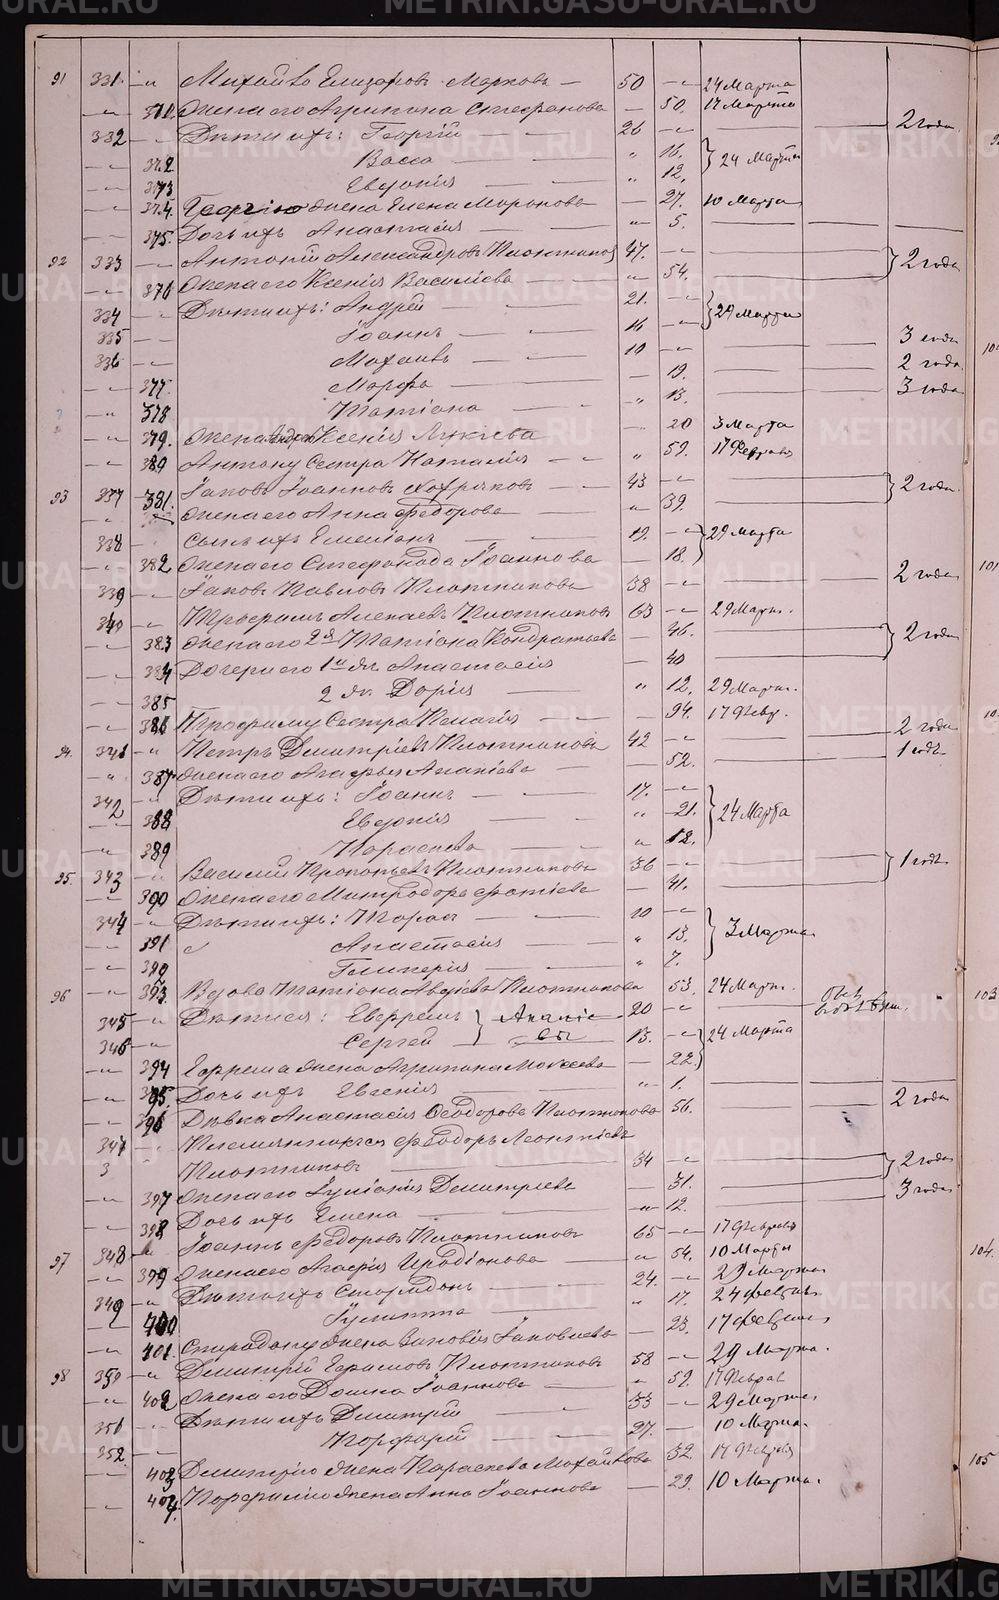 METRIKI.GASO-URAL.RU METRIKI.GASO-URAL.RU
91 331. -„- Михаилъ Елизаровъ Марковъ — 50 -„- 24 Марта
-„- 371. Жена его Агрипина Стефанова — 50. 17 Марта
332 -„- Дѣти ихъ: Георгій — 26 -„- 2 года
-„- 372 Васса — „ 16. } 24 Марта
-„- 373 Евдокія — „ 12.
-„- 374. Георгія жена Елена Миронова — 27. 10 Марта
-„- 375. Дочь ихъ Анастасія — „ 5.
92 333 -„- Антоній Александровъ Плотниковъ 47. -„- } 2 года
-„- 376 Жена его Ксенія Василіева — „ 54.
334 -„- Дѣти ихъ: Андрей — 21. -„- } 29 Марта
335 — Іоаннъ — 16 -„-
336 -„- Михаилъ — 10 -„- 3 года
-„- 377. Марфа — 19. 2 года
-„- 378 Татіана — „ 13. 3 года
-„- 379. Жена Андрея Ксенія Лукіева — 20 3 Марта
-„- 380 Антону Сестра Наталія — „ 59. 17 Февраля
93 337 381. Іаковъ Іоанновъ — 43 -„- } 2 года
-„- Жена его Анна Федорова — „ 39.
338 -„- Сынъ ихъ Емеліанъ — 19. -„- } 29 Марта
-„- 382 Жена его Стефанида Іоаннова — 18.
339 -„- Іаковъ Павловъ Плотниковъ — 38 -„- 2 года
340 -„- Трофимъ Алексѣевъ Плотниковъ 63 -„- 29 Март.
-„- 383 Жена его 2я Татіана Кондратьева — 46. } 2 года
-„- 384 Дочери его 1й ж. Анастасія — 40
-„- 385 2 ж. Дарія — „ 12. 29 Март.
-„- 386 Трофиму Сестра Пелагія — 94. 17 Февр.
94. 341 -„- Петръ Димитріевъ Плотниковъ 42 -„- 2 года
-„- 387 Жена его Агафья Ананіева — 52. 1 годъ
342 -„- Дѣти ихъ: Іоаннъ — 17. -„- } 24 Марта
-„- 388 Евдокія — „ 21.
-„- 389 Параскева — „ 12.
95. 343 -„- Василій Прокопьевъ Плотниковъ 36 -„- } 1 годъ
-„- 390 Жена его Митродора Фотіева — 41.
344 -„- Дѣти ихъ: Тарасъ — 10 -„- } 3 Марта
-„- 391 Анастасія — „ 13.
-„- 392 Гликерія — „ 7.
96 -„- 393. Вдова Татіана Авдіева Плотникова 53. 24 Март.
345 -„- Дѣти ея: } Ананіевы 20 -„-
346 -„- Сергей — 13. -„- } 24 Марта
-„- 394 жена Агрипина Моисеева — 22.
-„- 395. Дочь ихъ Евгенія — „ 1.
-„- 396 Дѣвка Анастасія Ѳеодорова Плотникова 56. 2 года
347 Племянникъ ея Ѳеодоръ Леонтіевъ
3 Плотниковъ — 34 -„- } 2 года
-„- 397 Жена его Іуліанія Димитріева — 31.
-„- 398 Дочь ихъ Елена — „ 12. 3 года
97 348 -„- Іоаннъ Ѳедоровъ Плотниковъ 65 -„- 17 Февраля
-„- 399 Жена его Агафія Иродіонова — „ 54. 10 Марта
349 -„- Дѣти ихъ Спиридонъ — 24. -„- 29 Марта
-„- 400 Іулитта — „ 17. 24 февраля
-„- 401. Спиридону жена Зиновія Іаковлева — 23. 17 февраля
98 350 -„- Димитрій Герасимовъ Плотниковъ 58 -„- 29 Марта.
-„- 402 Жена его Домна Іоаннова — „ 59. 17 Феврал
351 -„- Дѣти ихъ Димитрій — 33 -„- 29 Марта
352. -„- Порфирій — 27. -„- 10 Марта.
-„- 403 Димитрію жена Параскева Михайлова 32. 17 Феврал
-„- 404. Порфирію жена Анна Іоаннова — 29. 10 Марта.
103
104.
105
METRIKI.GASO-URAL.RU METRIKI.GASO-URAL.RU